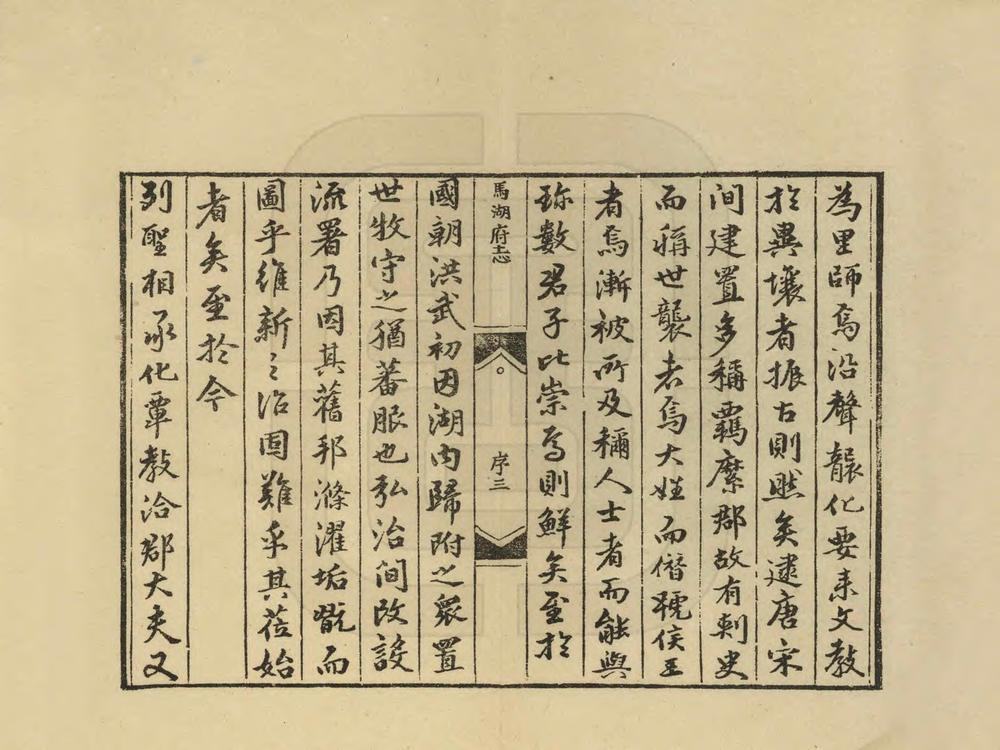 為里師焉沿聲襲化要耒文教
扵異壤者振古則然矣逮唐宋
间建置多稱羈縻郡故有刺史
而稱世襲者焉大姓而僭號侯王
者焉漸被所及稱人士者而能與
珎數君子比崇焉則鮮矣至扵
馬湖府志
序三
國朝洪武初因湖内歸附之衆置
世牧守之猶蕃服也弘治间改設
流署乃因其舊邦滌濯垢𤿙而
圖乎維新之治固難乎其莅始
者矣至扵今
列聖相承化覃教洽郡大夫又